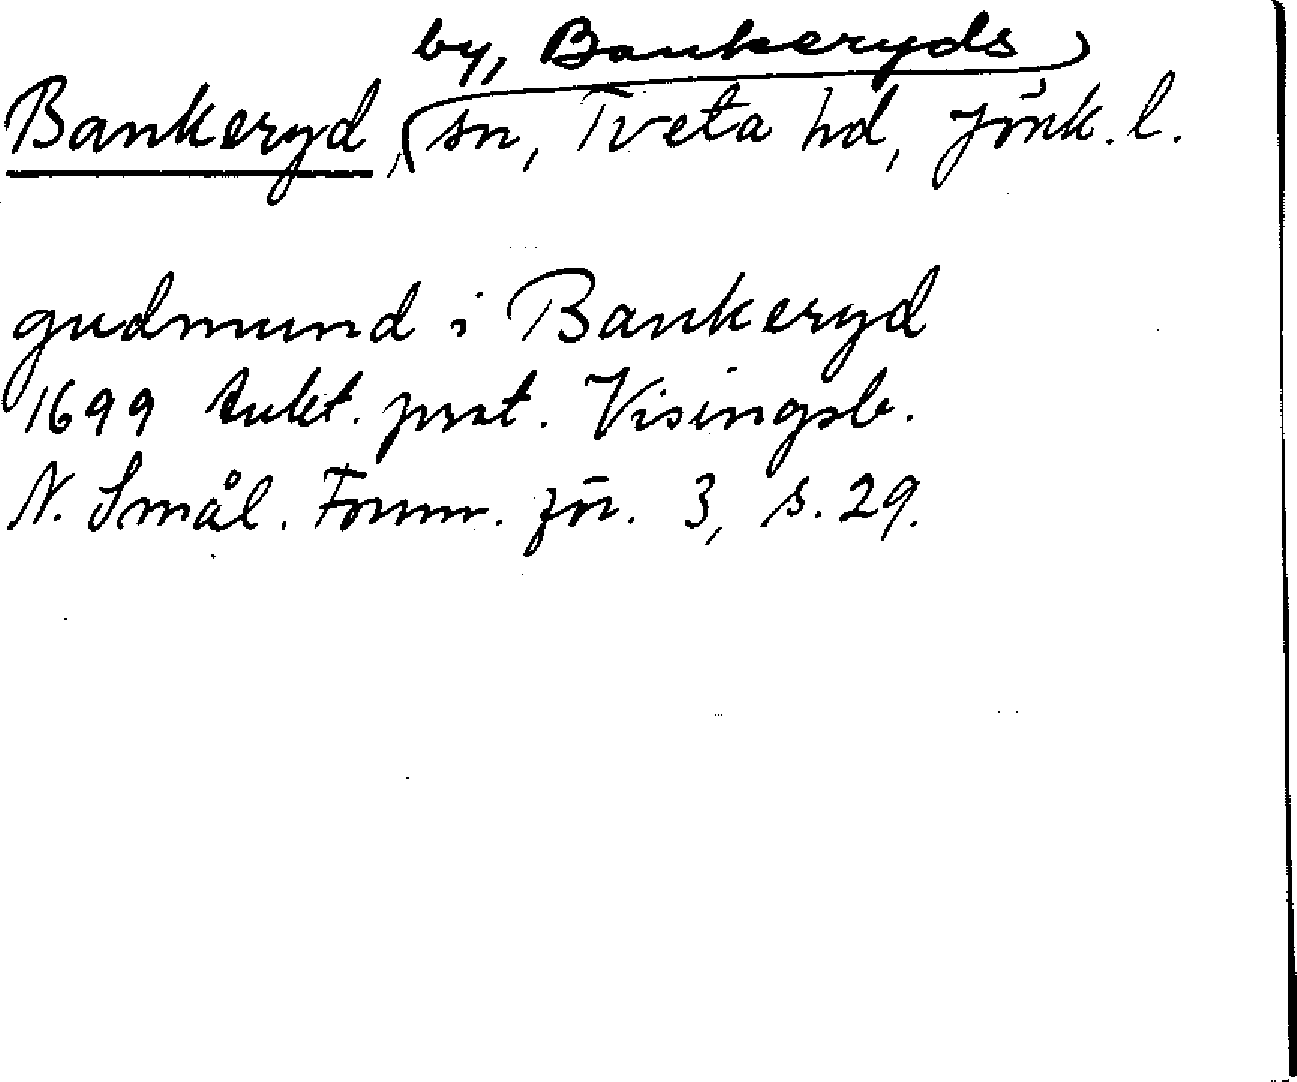 by, Bankeryds
Bankeryd, sn, Tveta hd, Jönk. l.
gudmund i Bankeryd
1699 Aukt. prot. Visingsb.
N. Smål. Fornm. för. 3, s. 29.